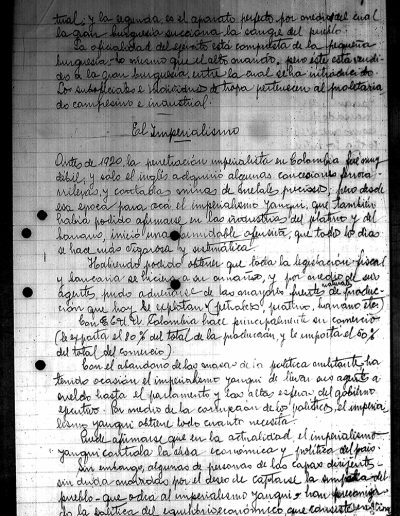 tual; y la segunda, es el aparato perfecto por medio del cual
la gran burguesía succiona la sangre del pueblo.
La oficialidad del ejército está compuesta de la pequeña
burguesía, lo mismo que el alto mando, pero éste está vendi-
do a la gran burguesía, entre la cual se ha
Los suboficiales e individuos de tropa pertenecen al proletaria
do campesino e industrial.
El Imperialismo
Antes de 1920, la penetración imperialista en Colombia fué muy
débil, y sólo el inglés adquirió algunas concesiones ferroca-
rrileras, y contables minas de metales preciosos; pero desde
esa época para acá el imperialismo yanqui, que también
había podido afirmarse en las industrias del platino y del
banano, inició una formidable ofensiva, que todos los días
se hace más vigorosa y sistemática.
Habiendo podido obtener que toda la legislación fiscal
y bancaria se hiciera a su amaño, y por medio de sus
agentes, pudo adueñarse de las mayores fuentes naturales de produc-
ción que hoy se explotan (petróleo, platino, banano etc)
Con E.E.U.U. Colombia hace principalmente su comercio
(le exporta el 80% del total de la producción, y le importa el 60%
del total del comercio)
Con el abandono de las masas de la política militante, ha
tenido ocasión el imperialismo yanqui de llevar sus agentes a
sueldo hasta el parlamento y las altas esferas del gobierno
ejecutivo. Por medio de la corrupción de los políticos, el imperia
lismo yanqui obtiene todo cuanto necesita.
Puede afirmarse que en la actualidad, el imperialismo
yanqui controla la vida económica y política del país.
Sin embargo, algunas de personas de las capas dirigentes,
sin duda animadas por el deseo de captarse la simpatía del
pueblo - que odia al imperialismo yanqui - han preconiza
do la política del equilibrio económico, que consiste en